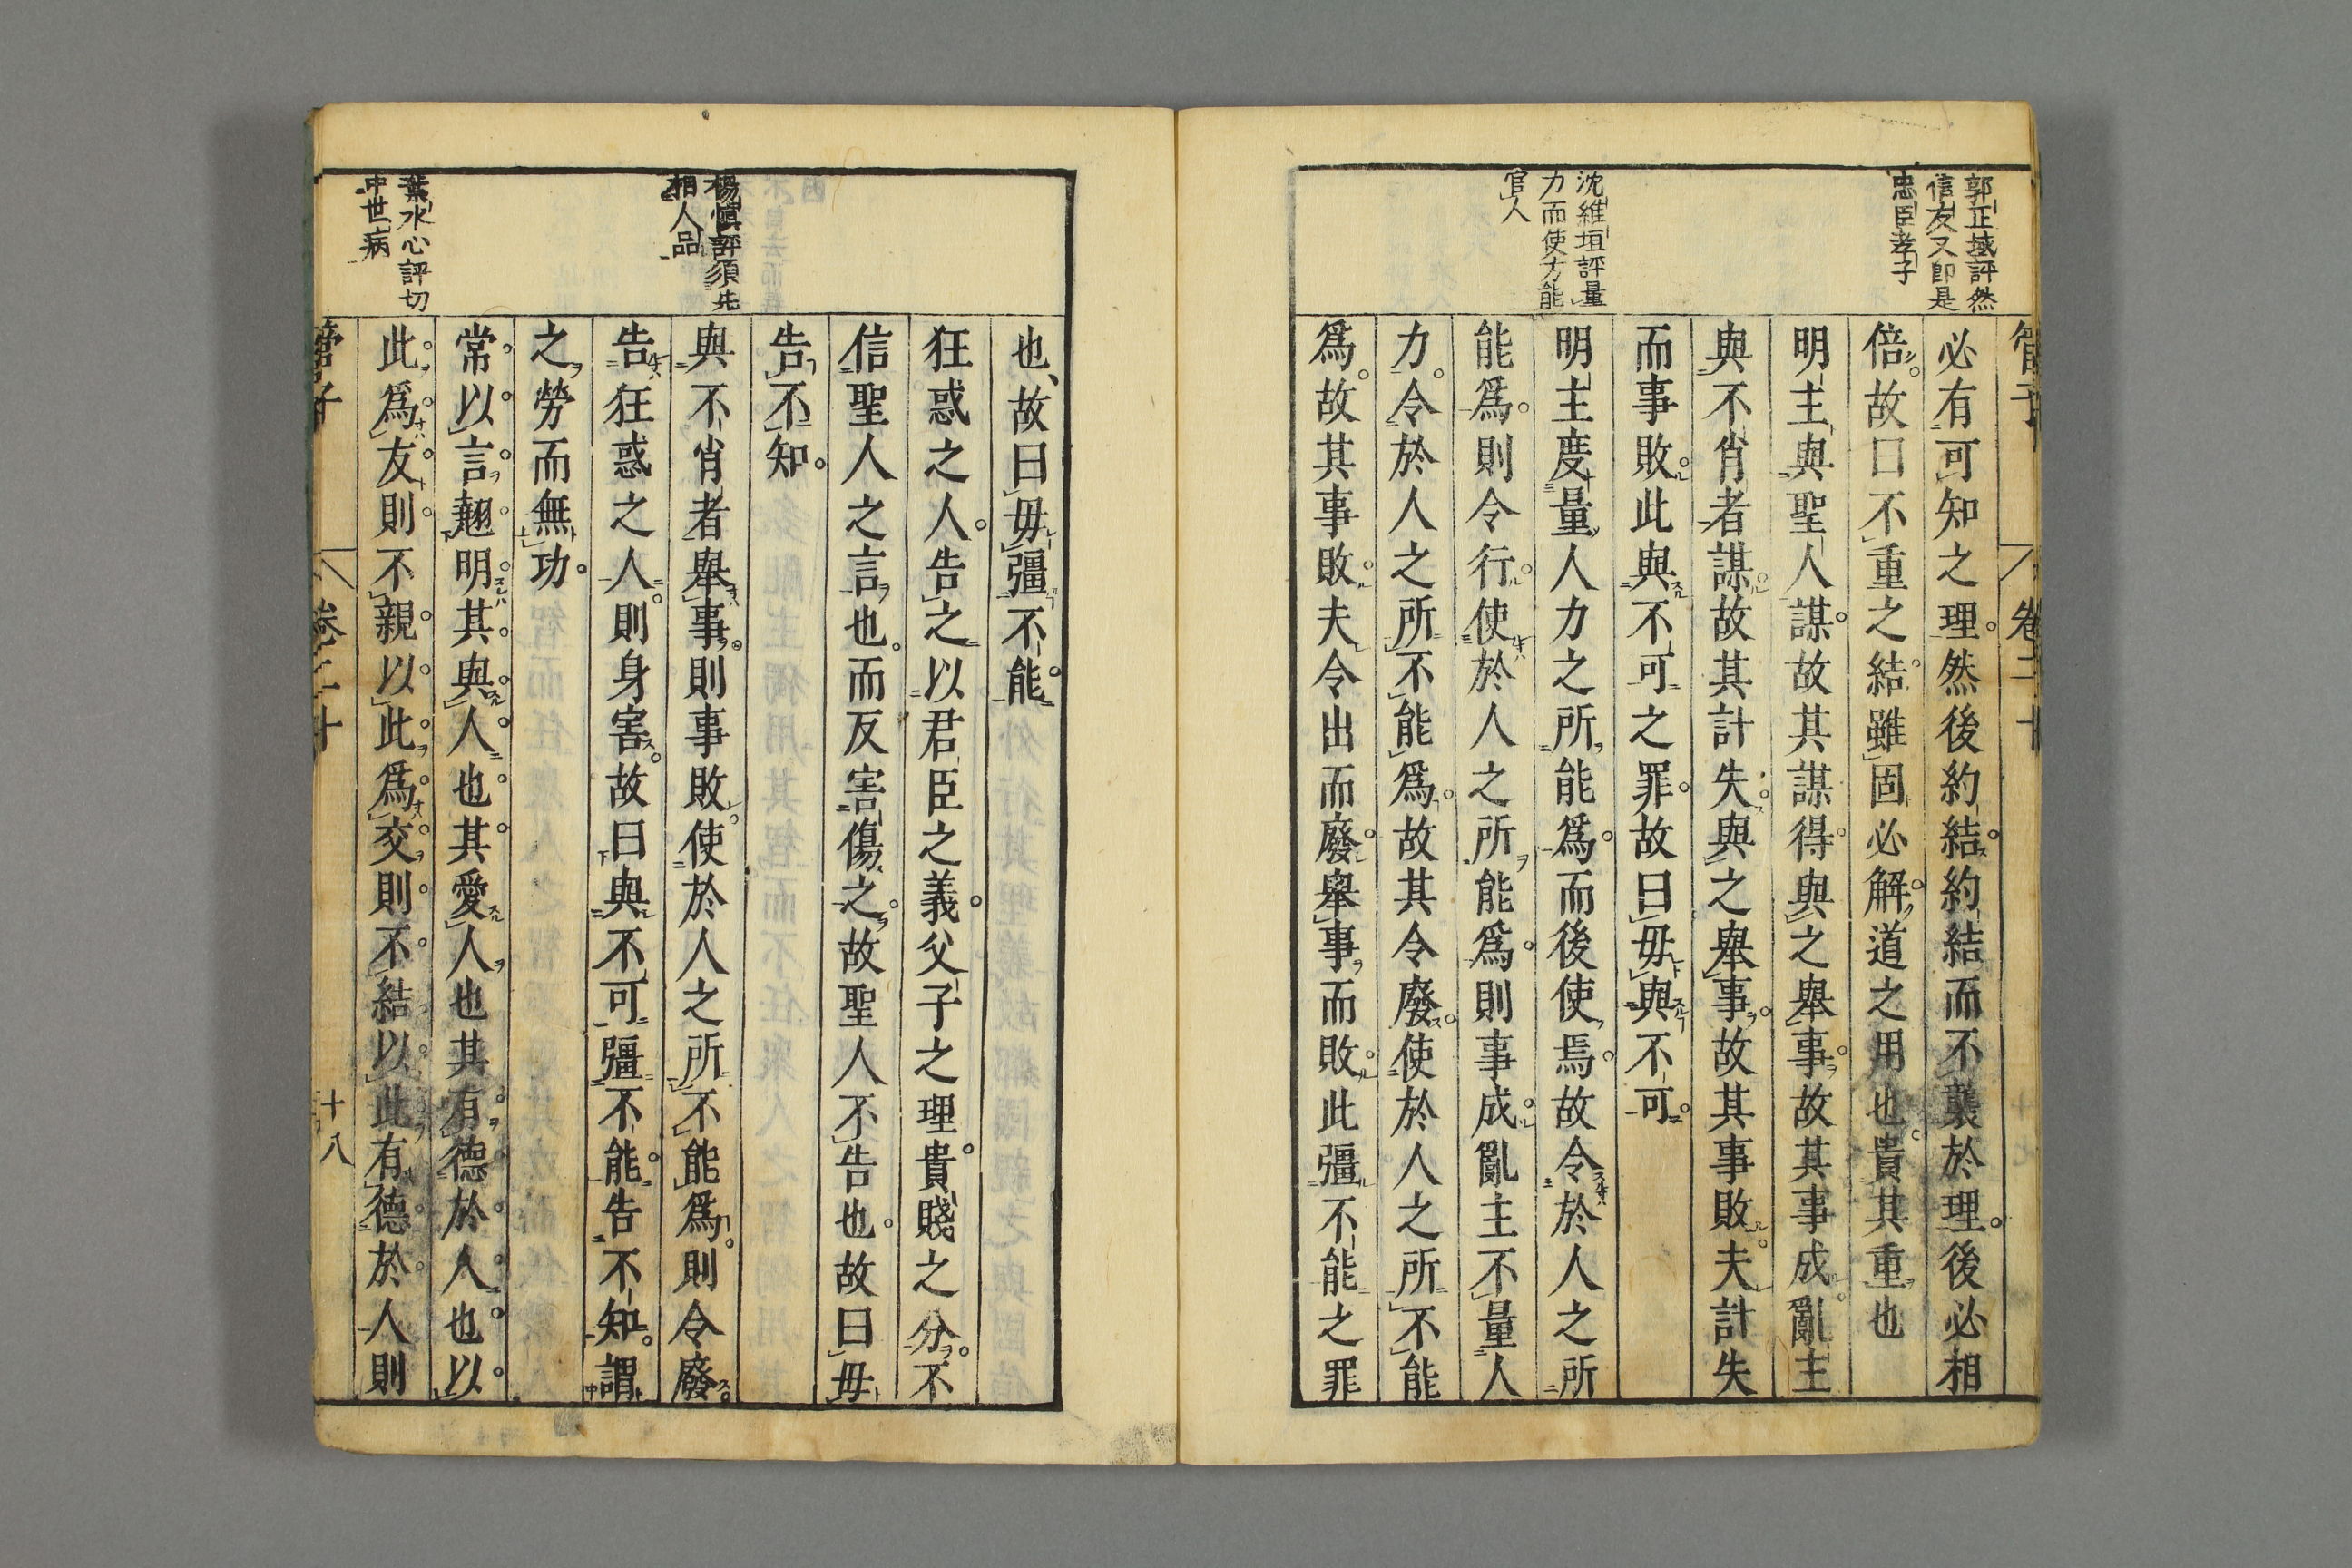 管子
卷二十
郭正域評然
信友又卽是
忠臣孝子
沈維垣評量
力而使方能
官人
必有可知之理然後約結約結而不襲於理後必相
倍故曰不重之結雖固必解道之用也貴其重也
明主與聖人謀故其謀得與之舉事故其事成亂主
與不肖者謀故其計失與之舉事故其事敗夫計失
而事敗此與不可之罪故曰毋與不可
明主度量人力之所能爲而後使焉故令於人之所
能爲則令行使於人之所能爲則事成亂主不量人
力令於人之所不能爲故其令廢使於人之所不能
爲故其事敗夫令出而廢舉事而敗此彊不能之罪
楊愼評須先
相人品
葉水心評切
中世病
也故曰毋彊不能
狂惑之人告之以君臣之義父子之理貴賤之分不
信聖人之言也而反害傷之故聖人不告也故曰毋
告不知
與不肖者舉事則事敗使於人之所不能爲則令廢
告狂惑之人則身害故曰與不可彊不能告不知謂
之勞而無功
常以言翹明其與人也其愛人也其有德於人也以
此爲友則不親以此爲交則不結以此有德於人則
管子
卷二十
十八